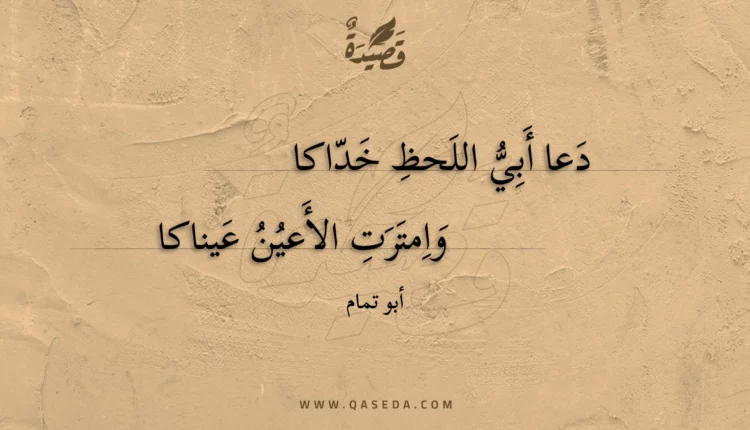 قَصِيْدَةٌ
دَعا أَبِيُّ اللَحظِ خَدّاكا
وَاِمتَرَتِ الأَعيُنُ عَيناكا
أبو تمام
WWW.QASEDA.COM